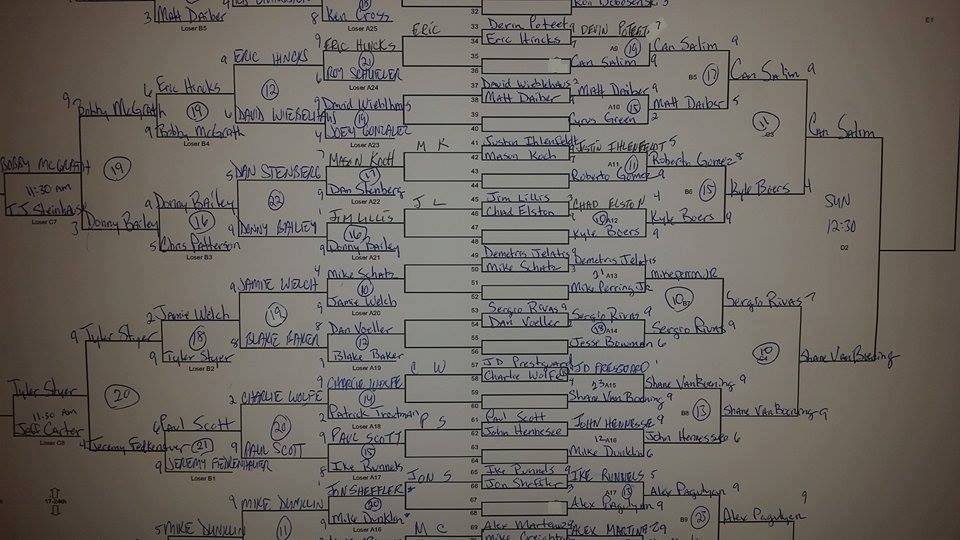 3 Matt Daiber
Loser B5
8 Ken Cross
Loser A25
9 Eric Hincks
6 Roy Schuler
Loser A24
9 David Wiebelhaus
4 Joey Gonzalez
Loser A23
7 Mason Koch
9 Dan Stenberg
Loser A22
Jim Lillis
9 Donny Bailey
Loser A21
4 Mike Schatz
9 Jamie Welch
Loser A20
8 Dan Voeller
9 Blake Baker
Loser A19
9 Charlie Wolfe
2 Patrick Troutman
Loser A18
9 Paul Scott
8 Ike Runnels
Loser A17
Jon Sheffler
Mike Dunklin
Loser A16
9 Eric Hincks
12
6 David Wiebelhaus
5 Dan Stenberg
22
9 Donny Bailey
9 Jamie Welch
19
8 Blake Baker
2 Charlie Wolfe
20
9 Paul Scott
9 Mike Dunklin
11
6 Eric Hincks
19
9 Bobby McGrath
Loser B4
9 Donny Bailey
16
5 Chris Patterson
Loser B3
2 Jamie Welch
18
9 Tyler Styer
Loser B2
6 Paul Scott
21
9 Jeremy Fedkenhauer
Loser B1
5 Mike Dunklin
9 Bobby McGrath
19
3 Donny Bailey
9 Tyler Styer
20
4 Jeremy Fedkenhauer
Bobby McGrath
11:30 AM
T.J. Steinhaus
Loser C7
Tyler Styer
11:30 AM
Jeff Carter
Loser C8
17-24th
Eric
M K
J L
C W
P S
Jon S
M C
32
33 Devin Poteet
34 Eric Hincks
35
36
37 David Wiebelhaus
38 Matt Daiber
39
40
41 Justin Ihlenfeldt
42 Mason Koch
43
44
45 Jim Lillis
46 Chad Elston
47
48
49 Demetris Jelatis
50 Mike Schatz
51
52
53 Sergio Rivas 9
54 Dan Voeller
55
56
57 JD Prestgard
58 Charlie Wolfe
59
60
61 Paul Scott
62 John Hennessee
63
64
65 Ike Runnels 9
66 Jon Sheffler
67
68
69 Alex Martinez
Mike Creighton
Ron Dobosenski 3
Devin Poteet 7
A9 19
Can Salim 9
Matt Daiber 9
A10 15
Cyrus Green 2
Justin Ihlenfeldt
A11 11
Roberto Gomez 9
Chad Elston 4
A12
Kyle Boers 9
Demetris Jelatis
A13
Mike Perring Jr
Sergio Rivas 9
A14
Jesse Bowman 6
JD Prestgard
A15
Shane Van Boening 9
John Hennessee 9
A16
Mike Dunklin 6
Ike Runnels 5
A17 13
Alex Pagulayan 9
Alex Martinez 9
Can Salim 9
B5 17
Matt Daiber 5
Roberto Gomez 8
B6 15
Kyle Boers 9
Mike Perring Jr
10 B7
Sergio Rivas 9
Shane Van Boening 9
B8 13
John Hennessee 6
Alex Pagulayan 9
B9
Can Salim 9
11
Kyle Boers 4
Sergio Rivas 7
Shane Van Boening 9
Alex Pagulayan
Can Salim
SUN
12:30
D2
Shane Van Boening
E1